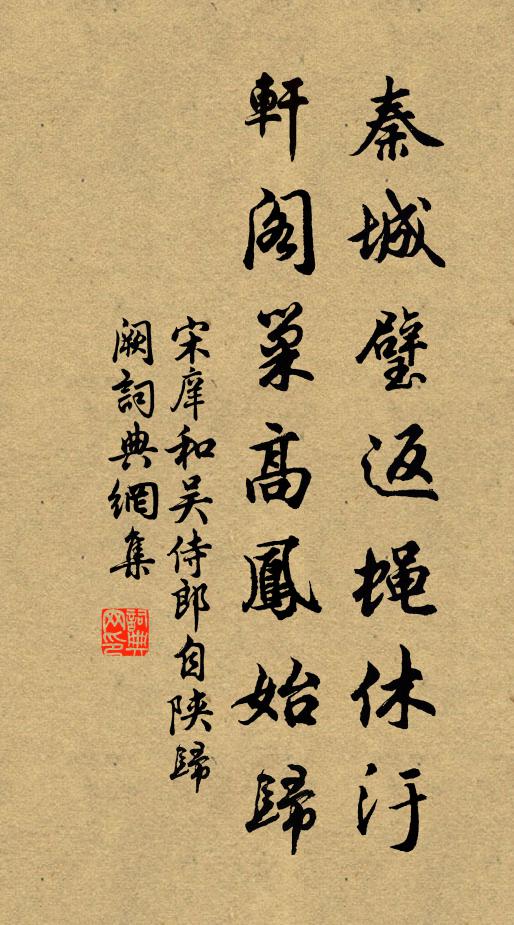 秦城璧返蝇休汙
軒阁巢高鳳始歸
宋庠和吴侍郎自陕歸
阙詞典網集
詞典
网印